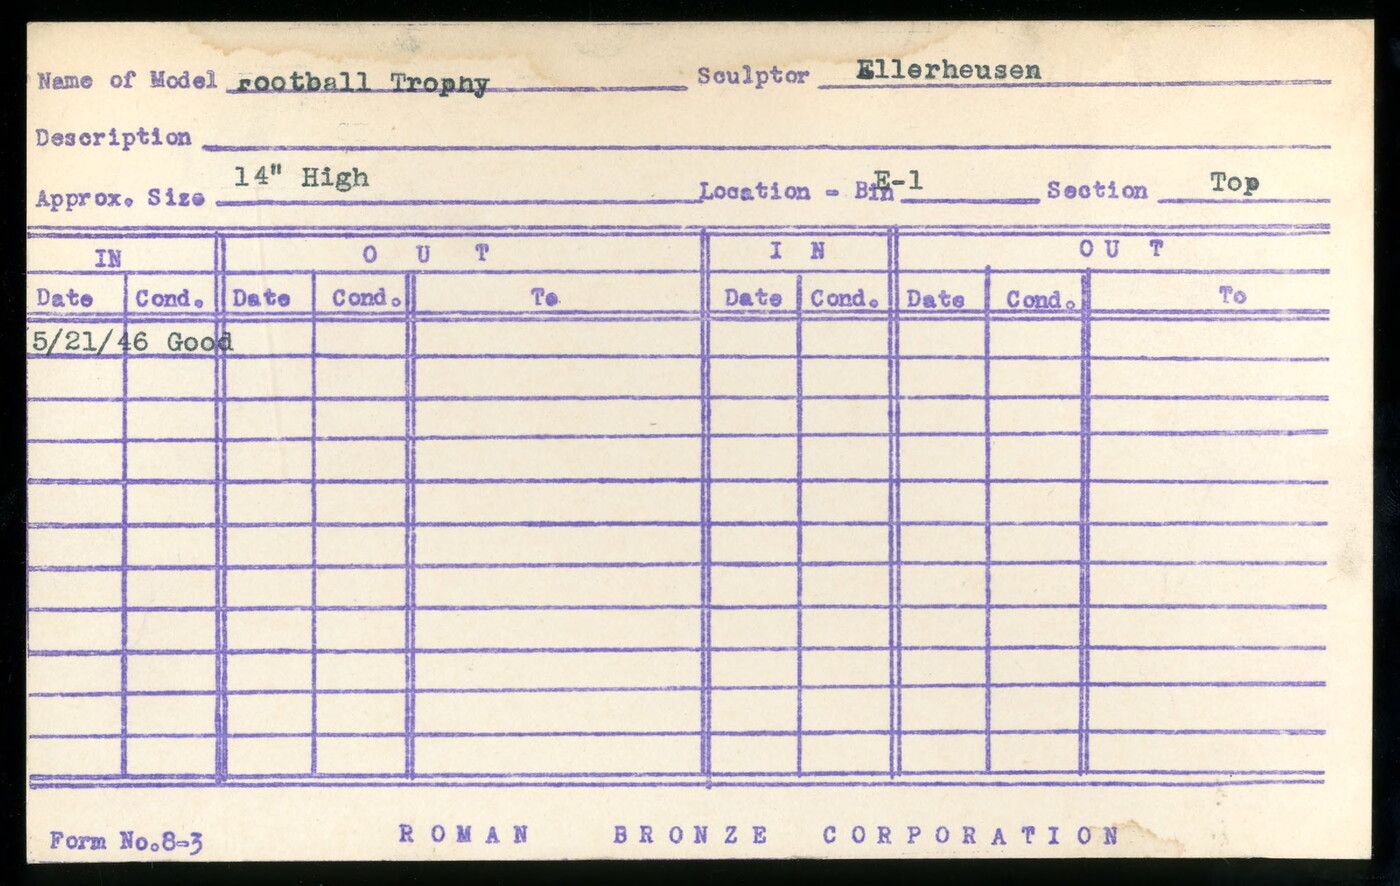 Name of Model Football Trophy Sculptor Ellerheusen
Description
Approx. Size 14" High Location - Bin E-1 Section Top
IN O U T I N O U T
Date Cond. Date Cond. To Date Cond. Date Cond. To
5/21/46 Good
Form No.8-3 ROMAN BRONZE CORPORATION